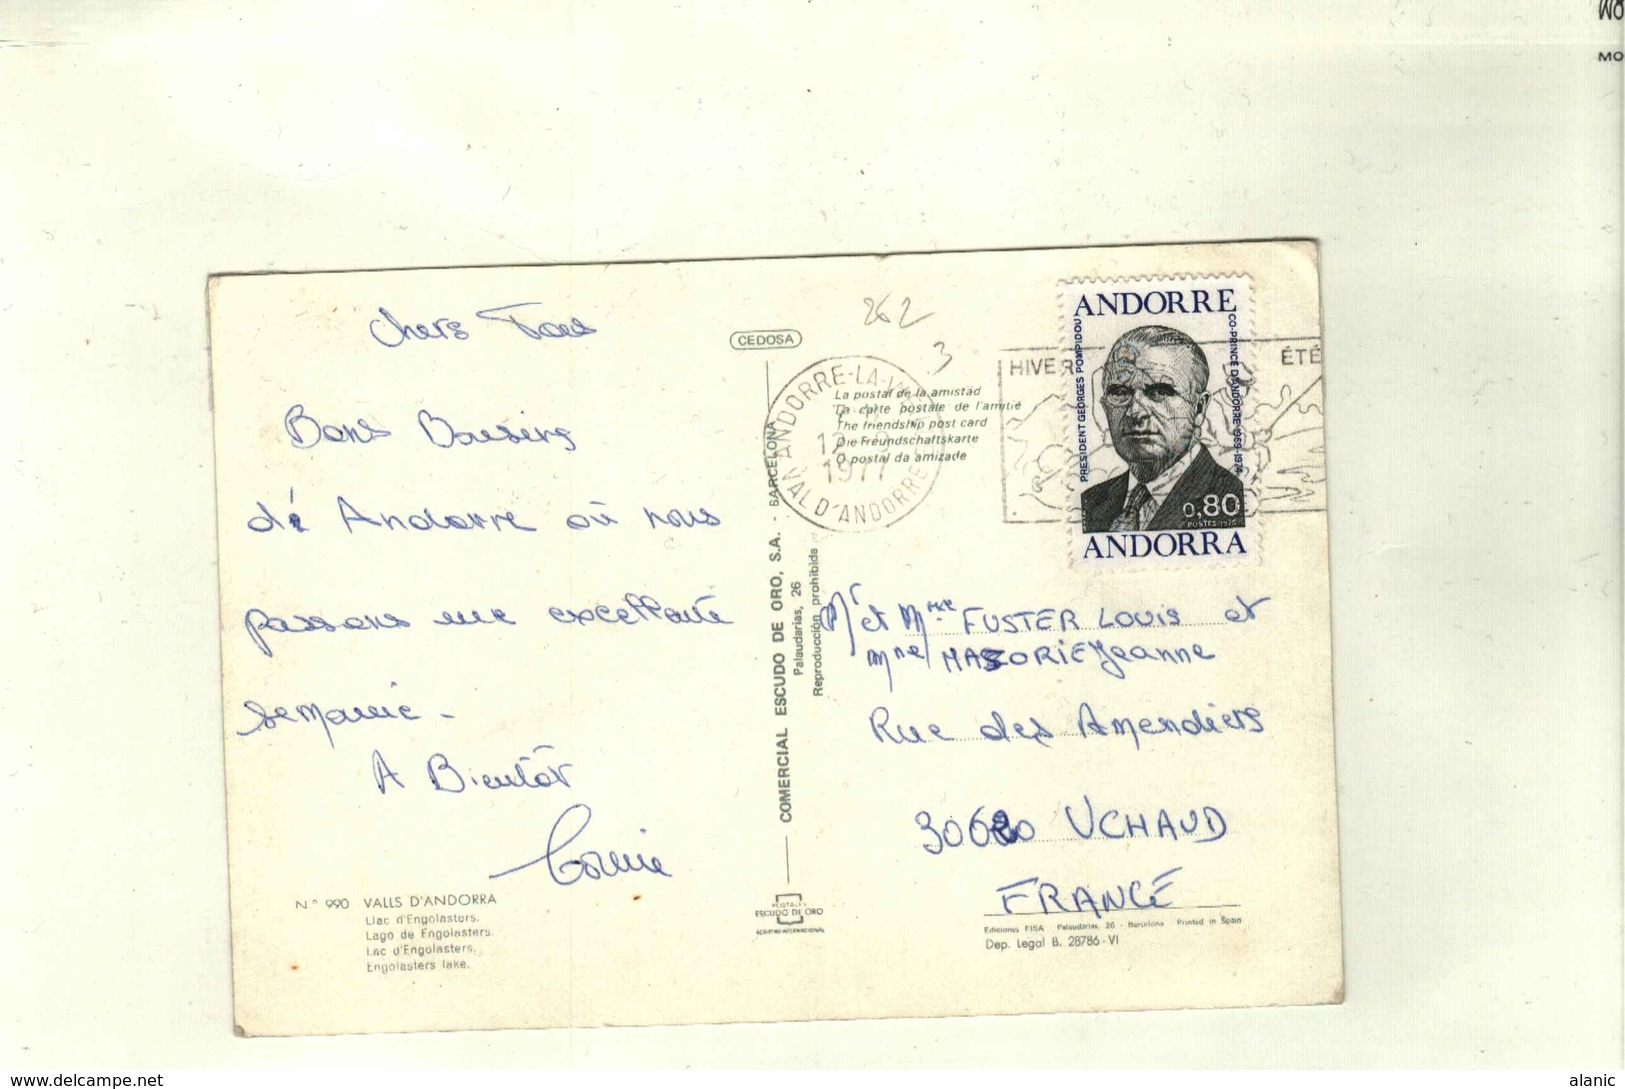 WO
MO
Chers Tous
Bons Baisers
d' Andorre où nous
passons une excellente
semaine -
A Bientôt
N° 990 VALLS D'ANDORRA
Llac d'Engolasters.
Lago de Engolasters.
Lac d'Engolasters.
Engolasters lake.
CEDOSA
COMERCIAL ESCUDO DE ORO, S.A. - BARCELONA
Palaudarias, 26
Reproducción prohibida
POSTALES
ESCUDO DE ORO
REGISTRO INTERNACIONAL
262
3
ANDORRE-LA-V
12
1977
VAL D'ANDORRE
La postal de la amistad
La carte postale de l'amitié
The friendship post card
Die Freundschaftskarte
O postal da amizade
HIVER
ÉTÉ
ANDORRE
PRESIDENT GEORGES POMPIDOU
CO-PRINCE D'ANDORRE 1969-1974
0,80
POSTES 1975
ANDORRA
Mr et Mme FUSTER LOUIS et
Mme MASORIE Jeanne
Rue des Amendiers
30620 UCHAUD
FRANCE
Ediciones FISA Palaudarias, 26 - Barcelona Printed in Spain
Dep. Legal B. 28786-VI
delcampe.net
alanic